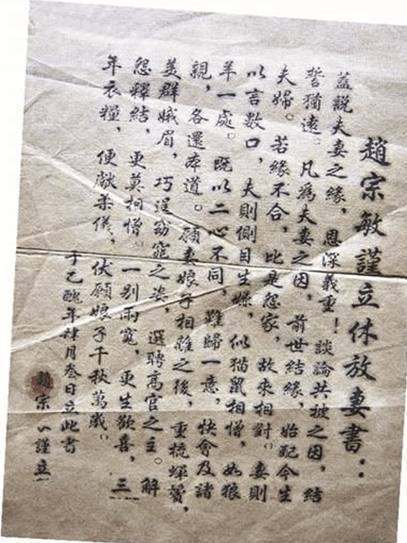 趙宗敏謹立休放妻書：
蓋説夫妻之緣，恩深義重！談論共被之因，結
誓猶遠。凡為夫妻之因，前世結緣，始配今生
夫婦。若緣不合，比是怨家，故來相對。妻則
以言數口，夫則側目生嫌，似猫鼠相憎，如狼
羊一處。既以二心不同，難歸一意，快會及諸
親，各還本道。願妻娘子相離之後，重梳蟬鬢，
美群娥眉，巧逞窈窕之姿，選聘高官之主。解
怨釋結，更莫相憎。一别兩寬，更生歡喜，三
年衣糧，便献柔儀，伏願娘子千秋萬歲。
于乙醜年肆月叁日立此書
趙宗謹立